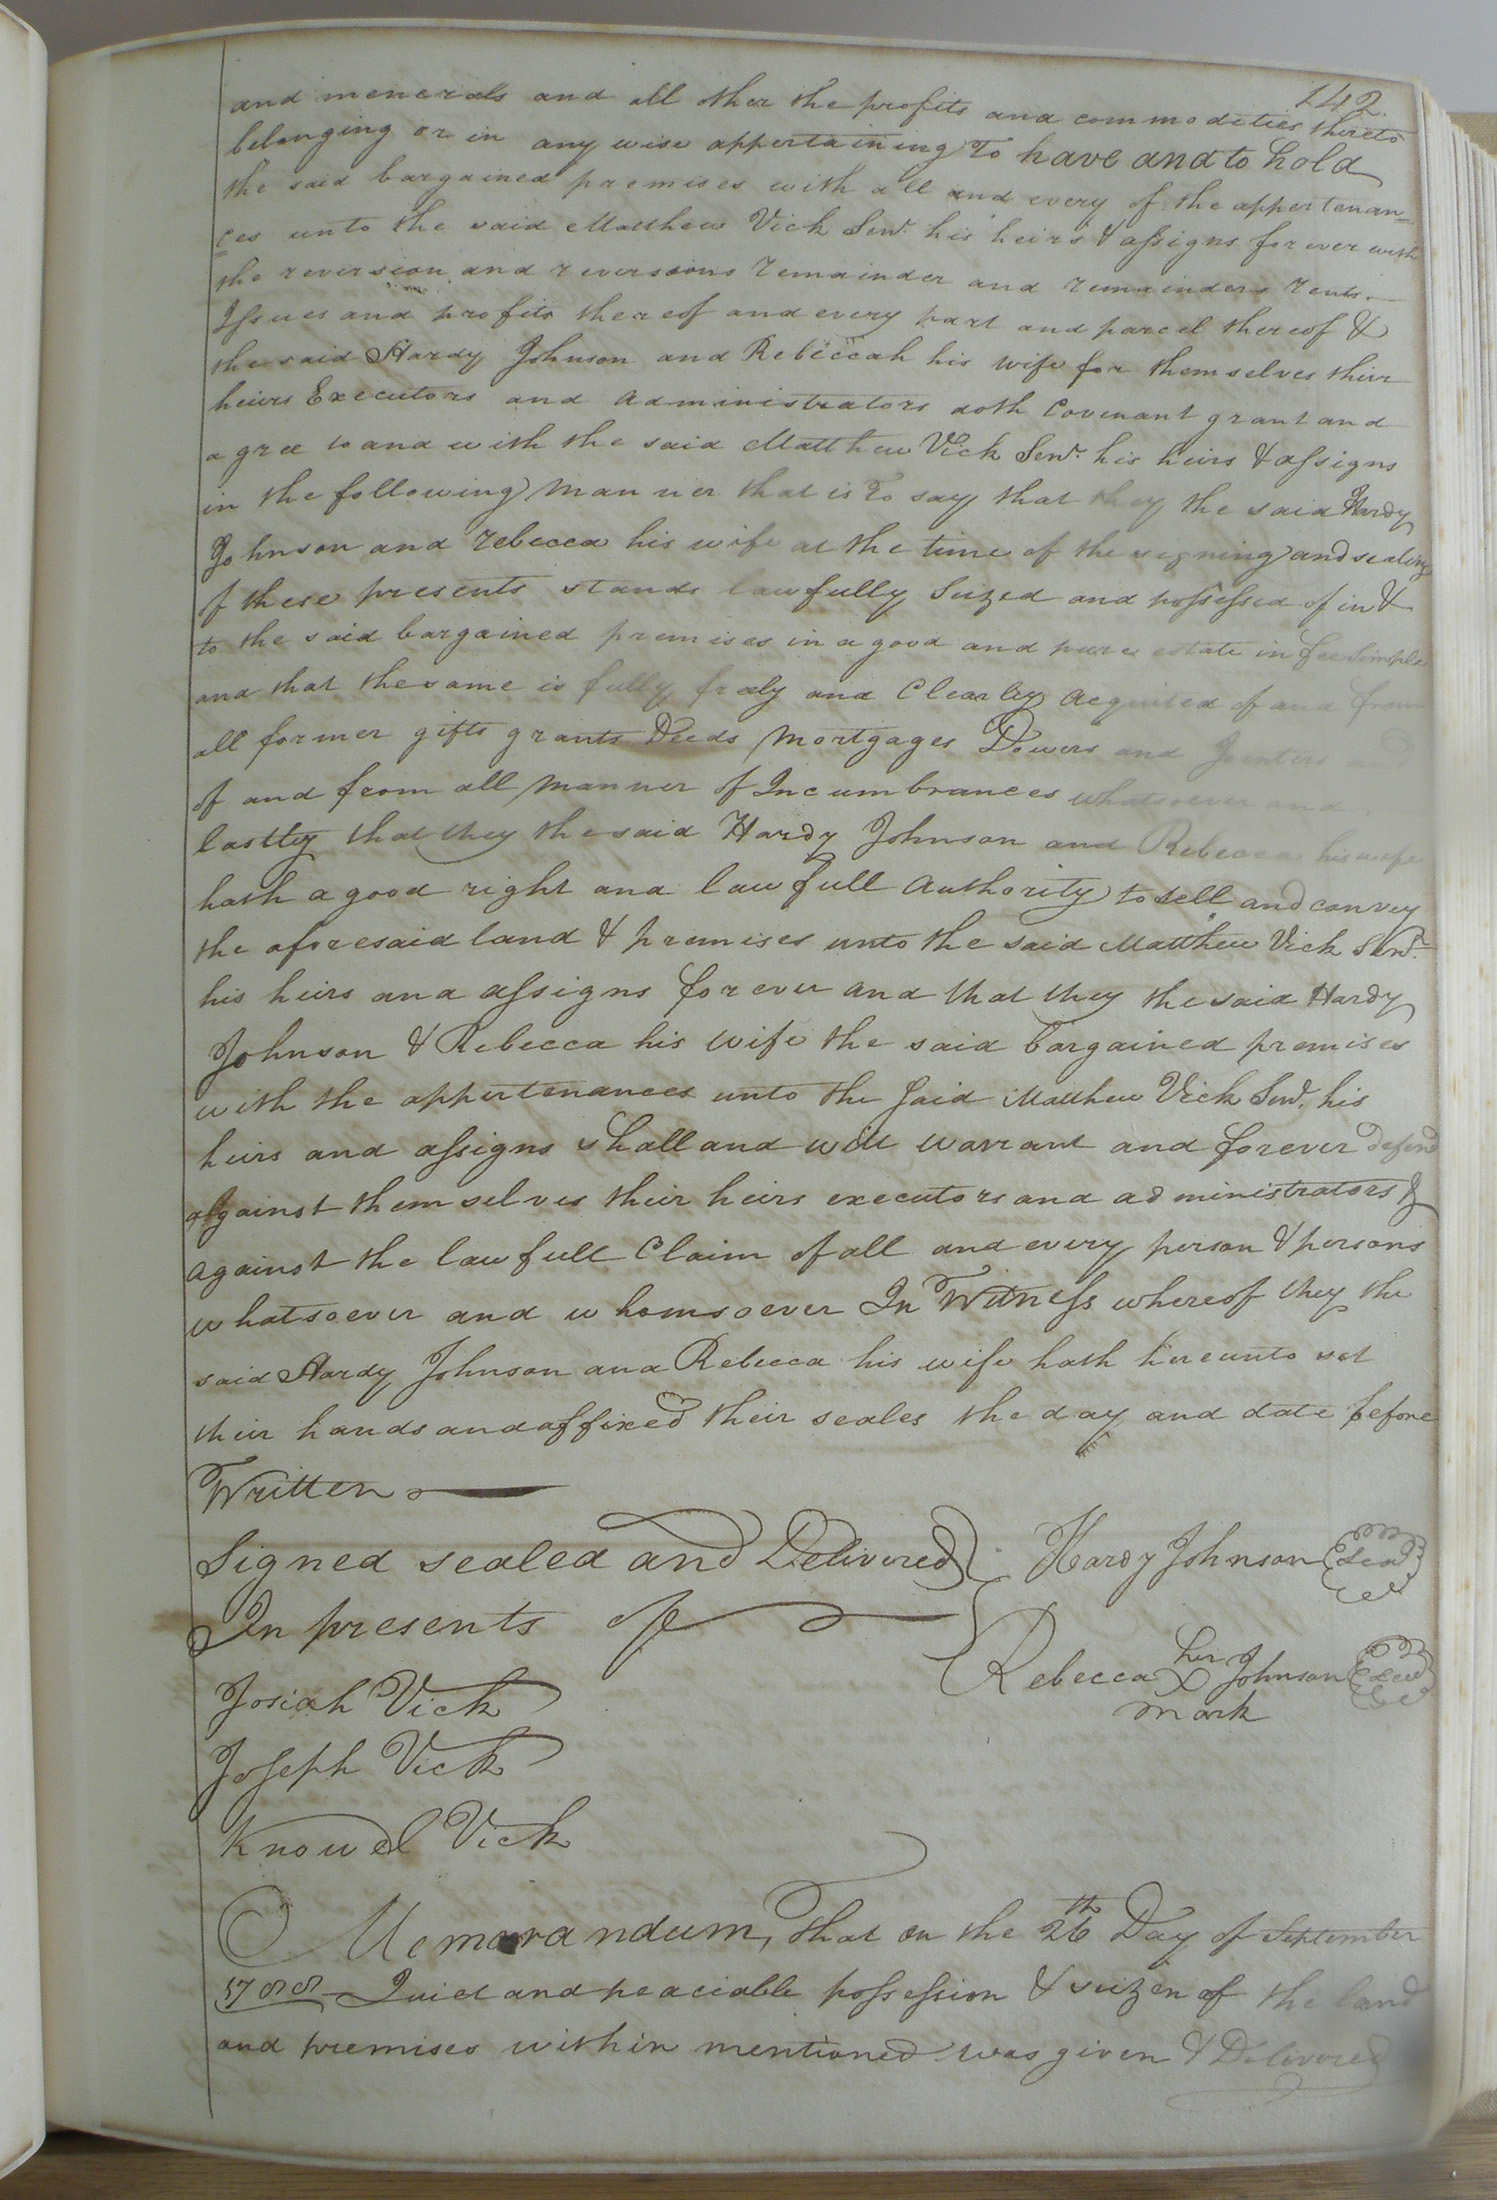 142
and menerals and all other the profits and commodities thereto
belonging or in any wise appertaining To have and to hold
the said bargained premises with all and every of the appertenan=
ces unto the said Matthew Vick Senr. his heirs & assigns forever with
the reversion and reversions remainder and remainders rents
Issues and profits thereof and every part and parcel thereof &
the said Hardy Johnson and Rebeccah his wife for themselves their
heirs Executors and administrators doth Covenant grant and
agree to and with the said Matthew Vick Senr. his heirs & assigns
in the following manner that is to say that they the said Hardy
Johnson and rebecca his wife at the time of the signing and sealing
of these presents stands lawfully Seized and possessed of in &
to the said bargained premises in a good and pure estate in fee Simple
and that the same is fully frely and Clearley acquited of and from
all former gifts grants Deeds mortgages Dowers and Jointers and
of and from all manner of Incumbrances whatsoever and
lastley that they the said Hardy Johnson and Rebecca his wife
hath a good right and lawfull authority to sell and convey
the aforesaid land & premises unto the said Matthew Vick Senr.
his heirs and assigns forever and that they the said Hardy
Johnson & Rebecca his wife the said bargained premises
with the appertenances unto the Said Matthew Vick Senr. his
heirs and assigns shall and will warrant and forever defend
against themselves their heirs executors and administrators &
against the lawfull Claim of all and every person & persons
whatsoever and whomsoever In Witness whereof they the
said Hardy Johnson and Rebecca his wife hath hereunto set
their hands and affixed their seales the day and date before
Written
Signed sealed and Delivered Hardy Johnson Seal
In presents of
Rebecca her X mark Johnson Seal
Josiah Vick
Joseph Vick
Knowel Vick
Memorandum, That on the 26th Day of September
1788 Quiet and peaciable possession & seizen of the land
and premises within mentioned was given & Delivered